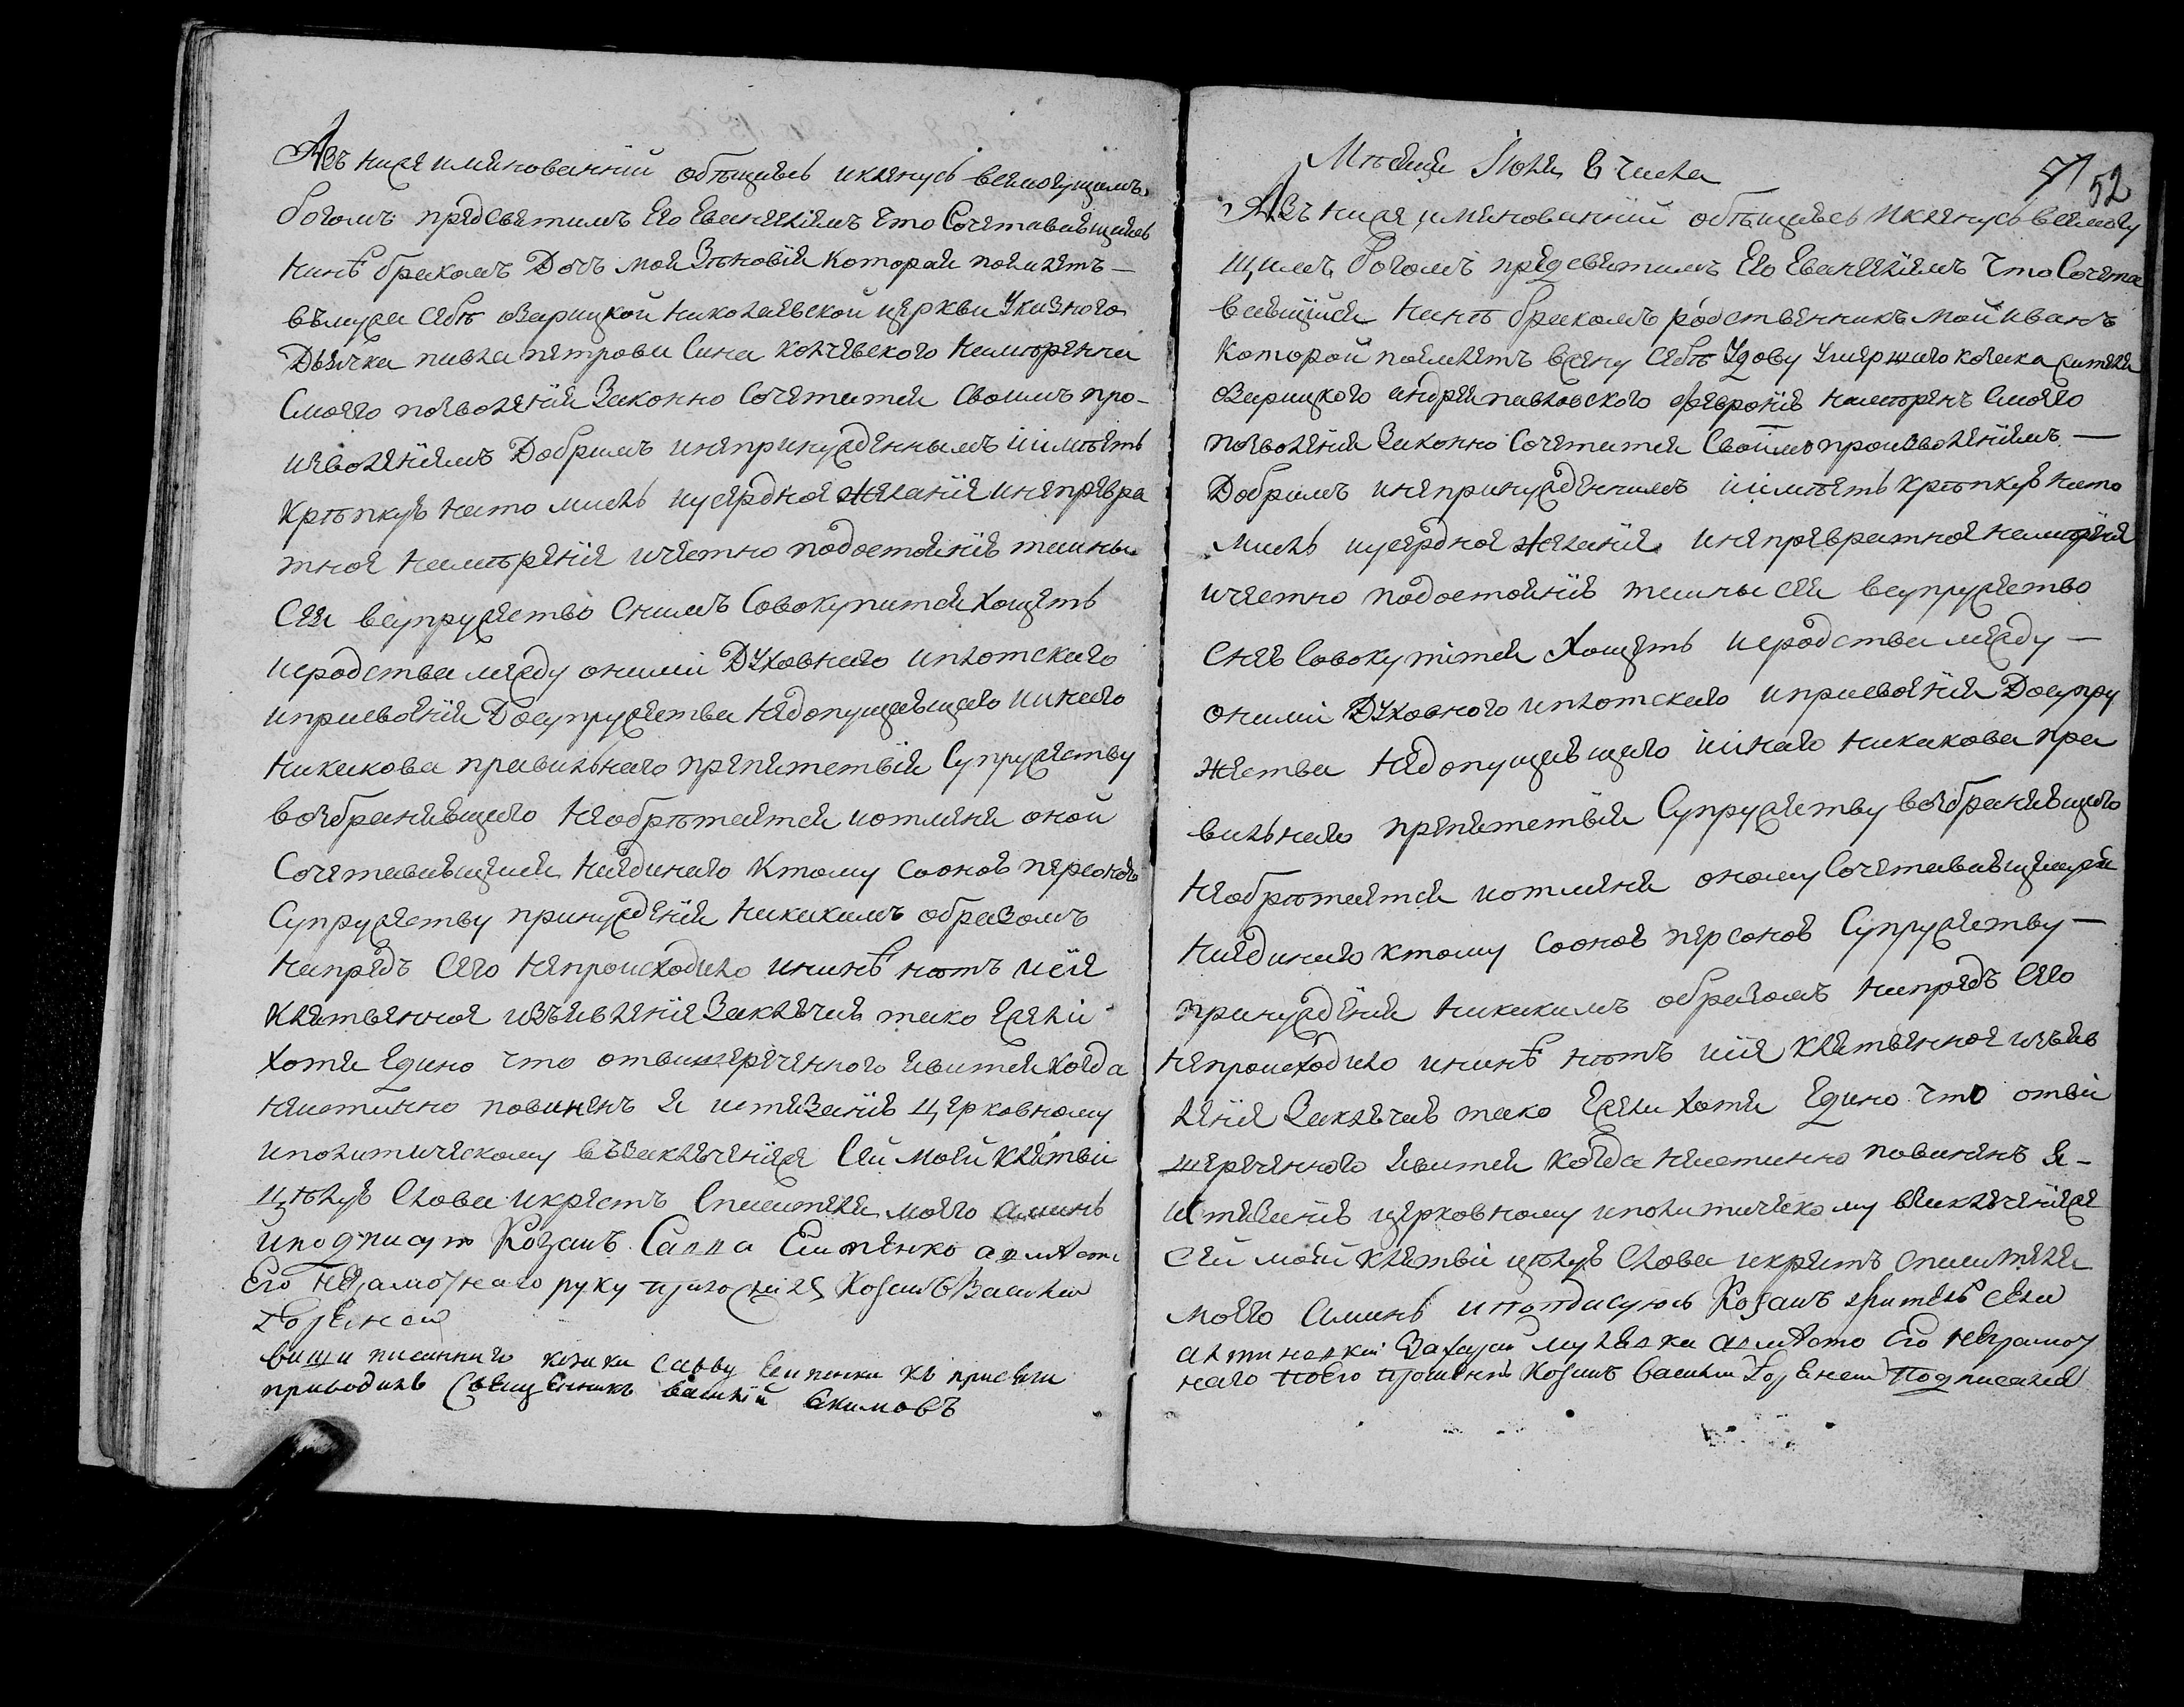 Азъ нижеименованний обѣщаюсь иклянусь всемогущимъ
богомъ предсвятимъ Его Евангелїемъ что Сочетаваящаясь
нинѣ бракомъ Дочъ моя Зѣновїя которая поймлетъ —
въмужа себѣ озарицкой николаевской церкви Указного
Дьячка павла петрова Сина колчевского намѣренна
Смоего позволенїя Законно Сочетатся своимъ про-
изволенїемъ Добримъ инепринужденнымъ иимѣетъ
крѣпкую нато мисль иусердное желанїе инепревра
тное намѣренїе ичестно подостоянїю тайны
сея всупружество снимъ Совокупитися хощетъ
иродства между оними Духовнаго иплотскаго
иприсвоенїя Досупружества недопущающаго иинаго
никакова правильнаго препятствїя Супружеству
возбраняющаго необрѣтается иотменя оной
Сочетавающейся ниединаго ктому сооною персоною
Супружеству принужденїя никакимъ образомъ
напредъ сего непроисходилоининѣ нѣтъ исїе
клятвенное изъявленїе Заключая тако Ежели
хотя Едино что отвишереченного явится когда
неистинно повиненъ я истязанїю церковному
иполитическому въЗаключенїеже сей моей клятви
цѣлую Слова икрестъ Спасителя моего аминь
иподписуюсь Козакъ Савва Еситенко авмѣсто
Его неграмотнаго руку приложилъ Козакъ Василий

више писанного козака савву Еситенка къ присяги
приводилъ Священникъ василїй Якимовъ

Мѣсяца Июля 6 числа
52
Азъ нижеименованнїй обѣщаюсь иклянусь всемогу
щимъ Богомъ предсвятимъ Его Евангелїемъ что Сочета
ваящїйся нинѣ бракомъ родственникъ мой иванъ
которой поймлетъ вжену себѣ Удову Умершаго козака жителя
озарицкого андрея павловского февронїю намѣренъ Смоего
позволенїя Законно Сочетатся Своимъ произволенїемъ —
Добримъ инепринужденнимъ иимѣетъ крѣпкую нато
мисль иусердное желанїе инепревратное намѣренїе
ичестно подостоянїю тайны сея всупружество
снею Совокупитися хощетъ иродства между —
оними Духовного иплотскаго иприсвоенїя Досупру
жества недопущающаго иинаго никакова пра
вильнаго препятствїя Супружеству возбраняющаго
необрѣтается иотменя оному Сочетавающемуся
ниединаго ктому сооною персоною Супружеству —
принужденїя никакимъ образомъ напредъ сего
непроисходило ининѣ нѣтъ исїе клятвенное изъяв
ленїе Заключаю тако Ежели хотя Едино что отви
шереченного явится когда неистинно повиненъ я -
истязанїю церковному иполитическому вЗаключенїеже
сей моей клятви цѣлую Слова икрестъ спасителя
моего Аминь иподписуюсь Козакъ житель села
Захарий авмѣсто Его неграмот
наго поего прошенїю Козакъ Василий подписался